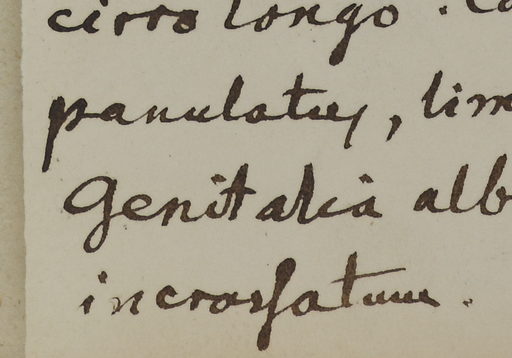 cirro longo. Co
panulatus, lim
Genitalia alb
incrassatum.